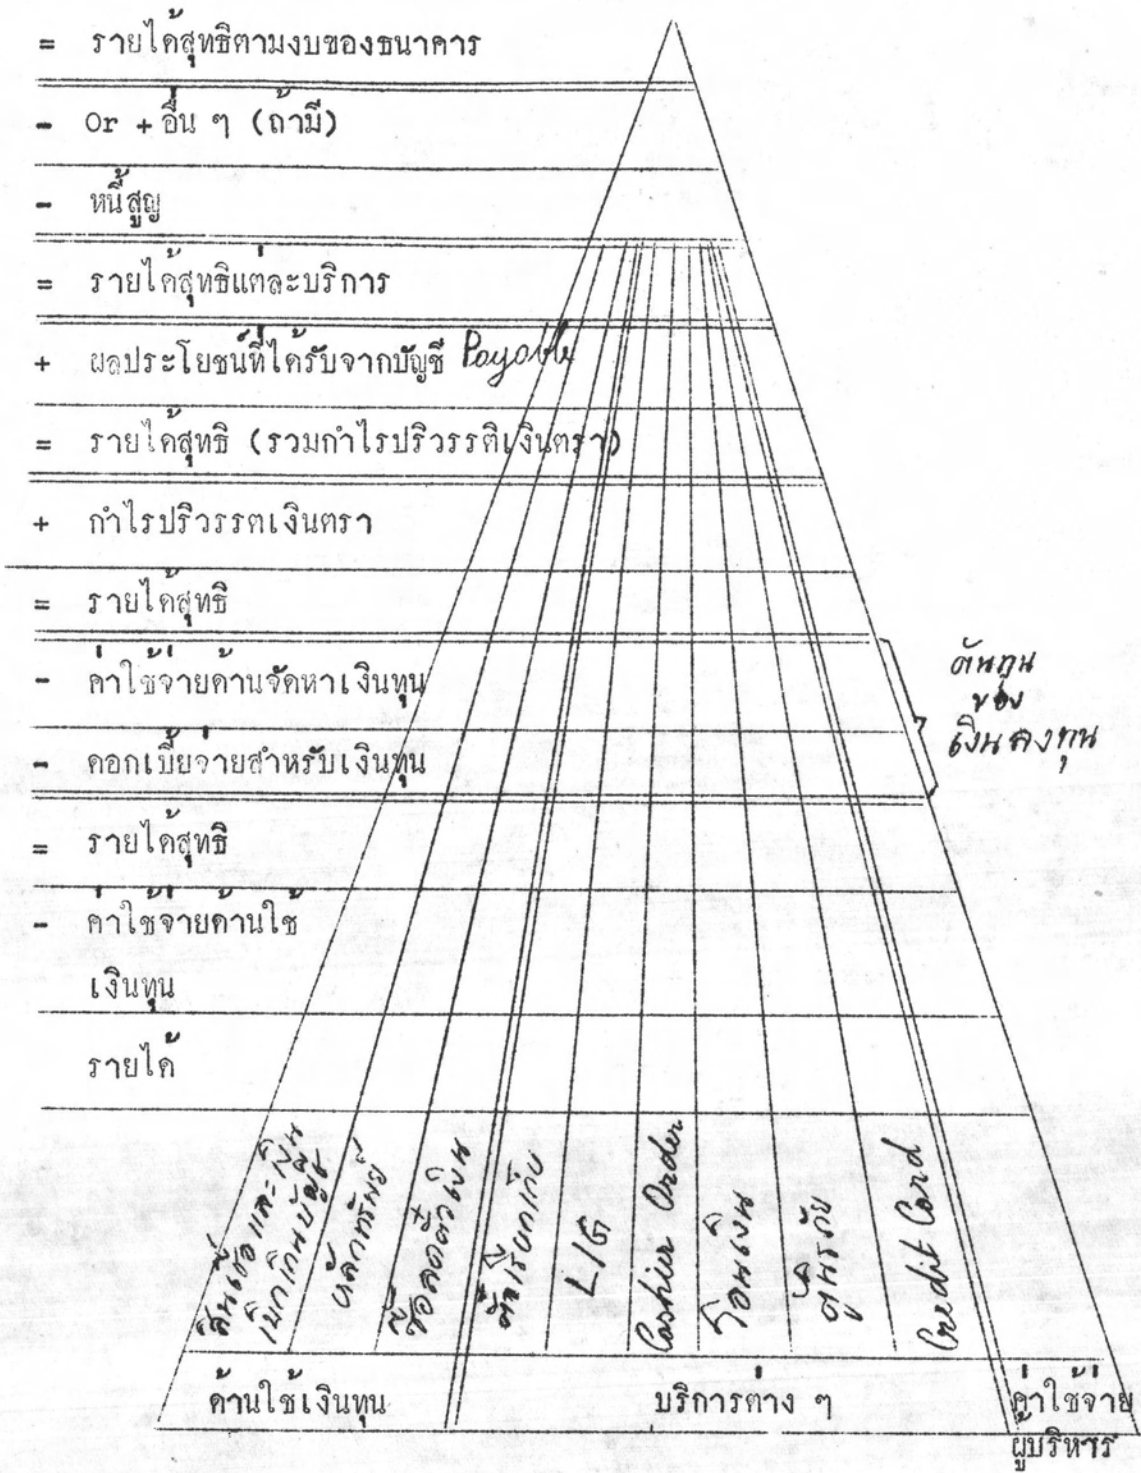 = รายได้สุทธิตามงบของธนาคาร
- Or + อื่น ๆ (ถ้ามี)
- หนี้สูญ
= รายได้สุทธิแต่ละบริการ
+ ผลประโยชน์ที่ได้รับจากบัญชี Payable
= รายได้สุทธิ (รวมกำไรปริวรรติเงินตรา)
+ กำไรปริวรรตเงินตรา
= รายได้สุทธิ
- ค่าใช้จ่ายด้านจัดหาเงินทุน
- ดอกเบี้ยจ่ายสำหรับเงินทุน
ต้นทุน
ของ
เงินลงทุน
= รายได้สุทธิ
- ค่าใช้จ่ายด้านใช้
เงินทุน
รายได้
สินเชื่อและเงิน
เบิกเกินบัญชี
หลักทรัพย์
ซื้อลดตั๋วเงิน
ตั๋วเรียกเก็บ
L/G
Cashier Order
โอนเงิน
ตู้นิรภัย
Credit Card
ด้านใช้เงินทุน
บริการต่าง ๆ
ค่าใช้จ่าย
ผู้บริหาร